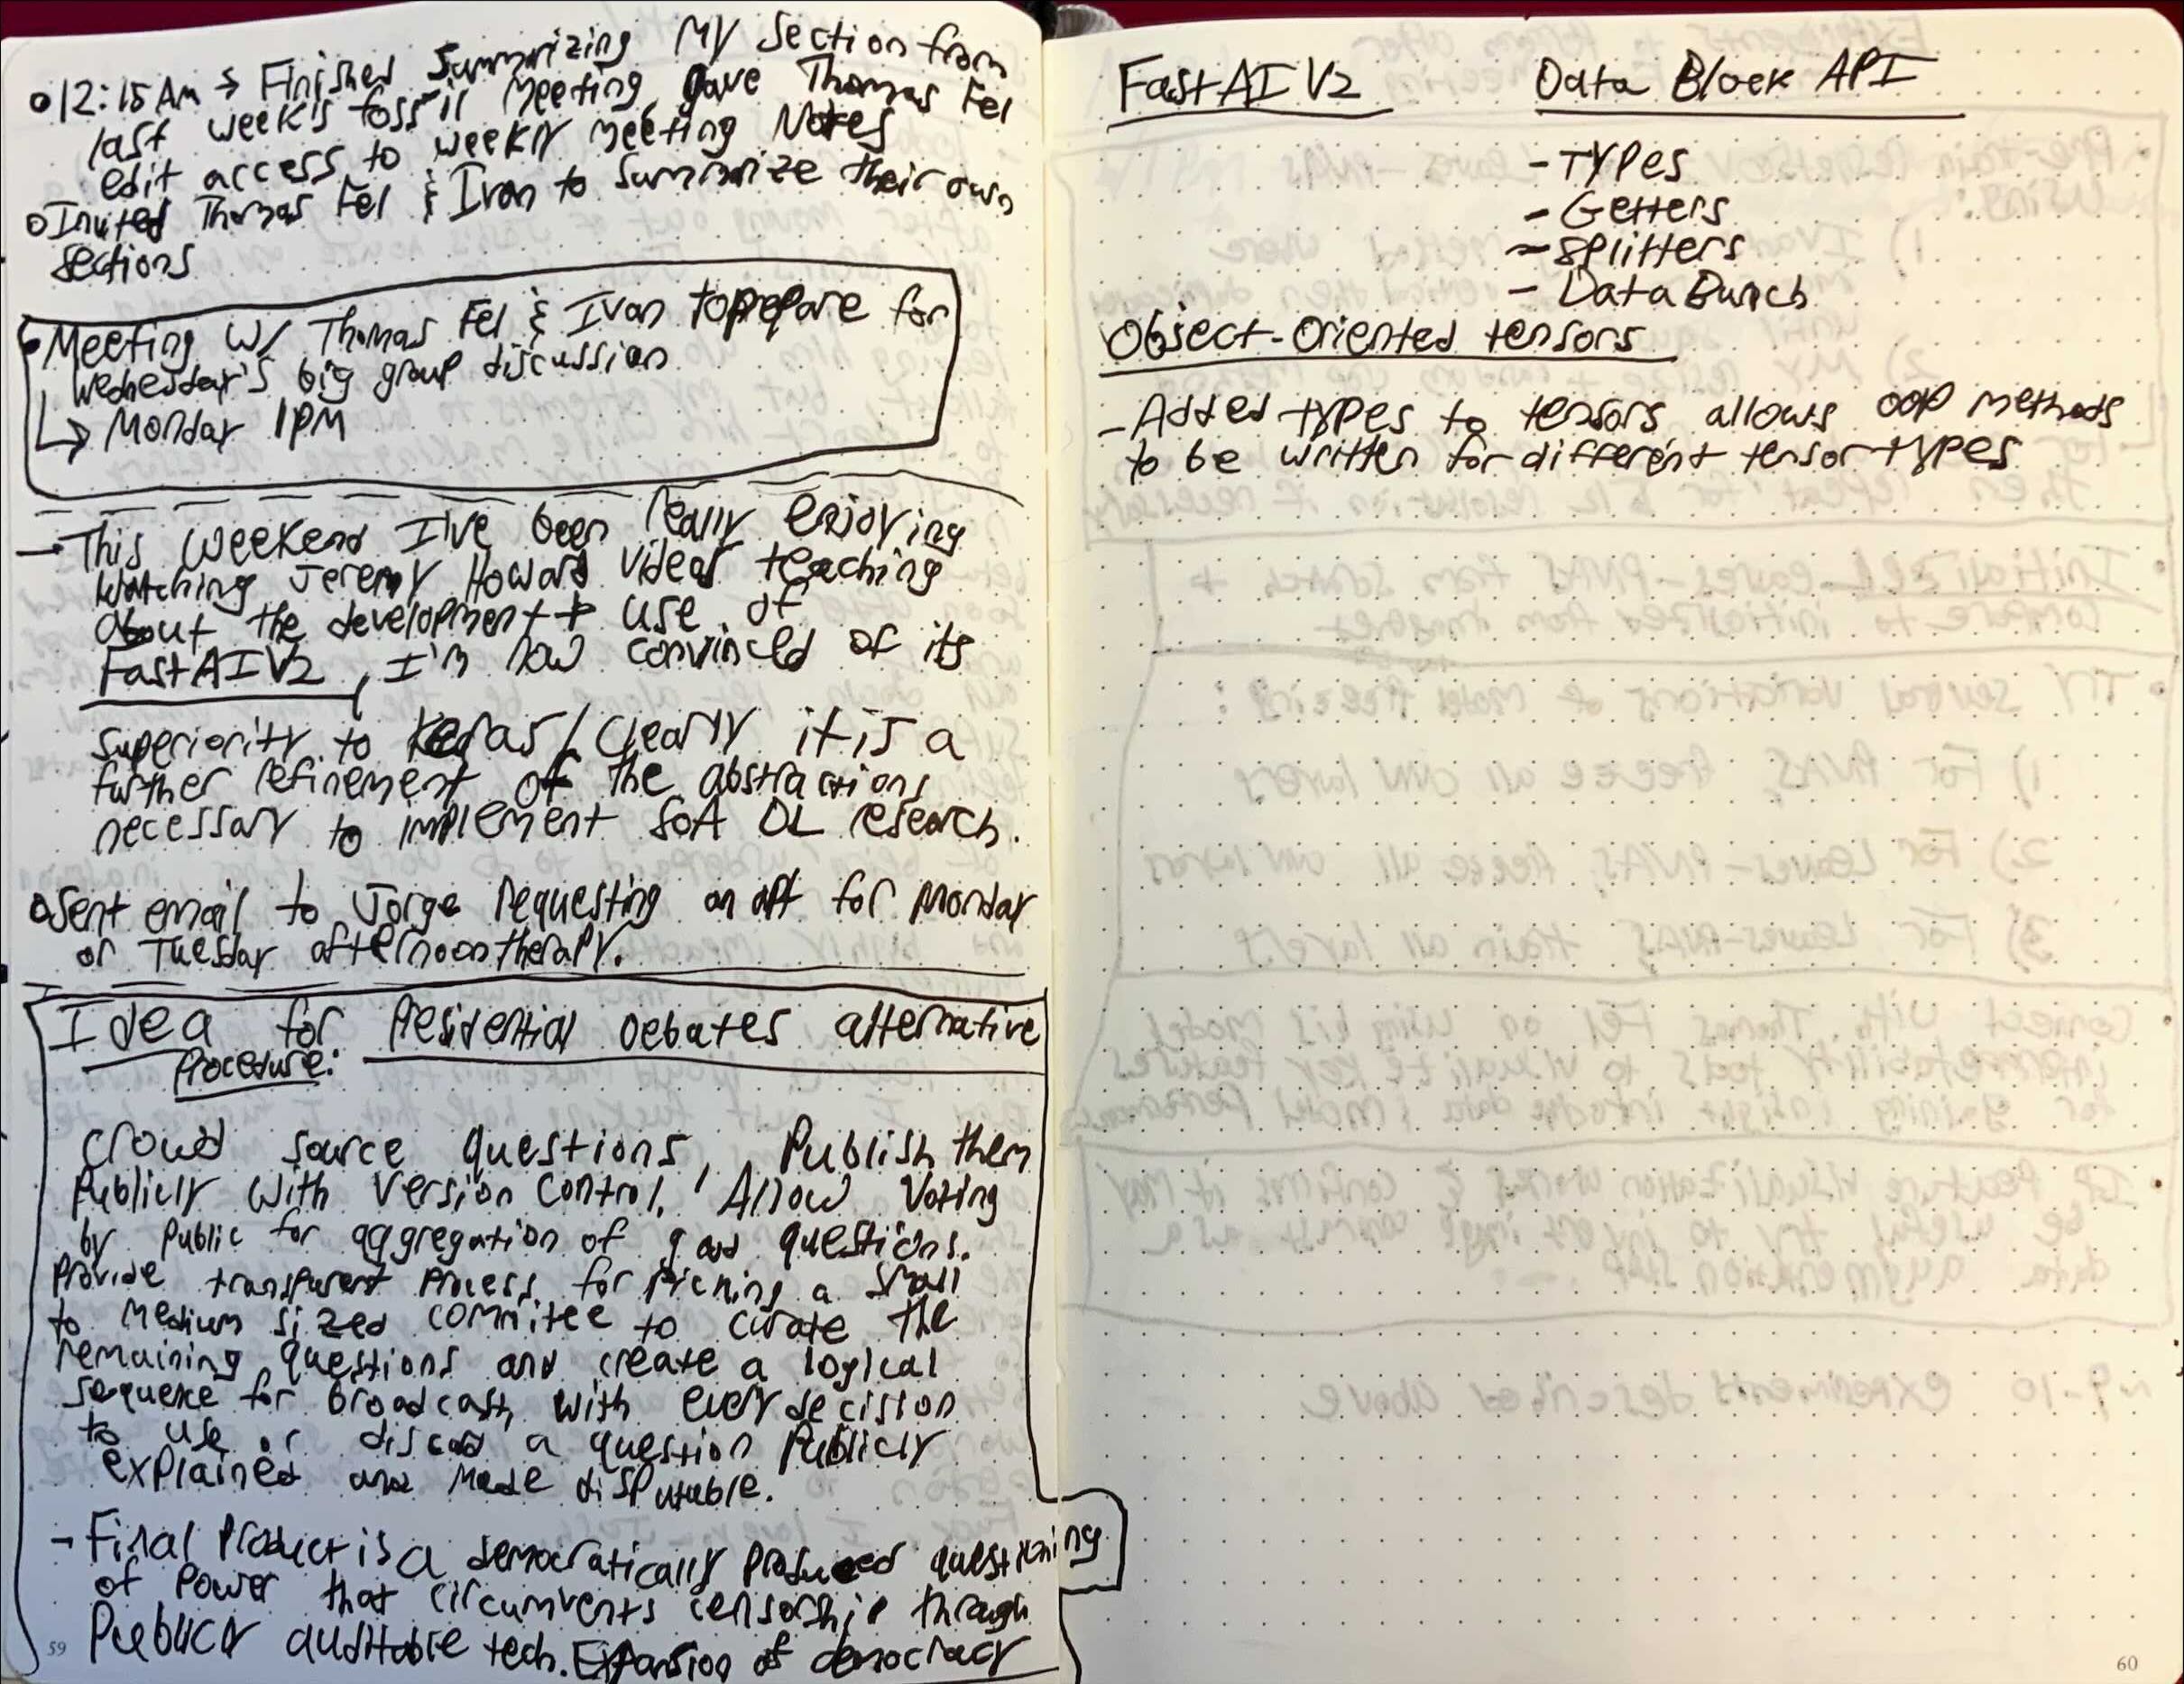 12:15 AM → Finished Summarizing My Section from
last week's fossil Meeting, gave Thomas Fel
edit access to weekly meeting Notes
Invited Thomas Fel & Ivan to Summarize their own
sections
Meeting w/ Thomas Fel & Ivan to prepare for
Wednesday's big group discussion
↳ Monday 1PM
→ This weekend I've been really enjoying
watching Jeremy Howard videos teaching
about the development + use of
FastAI V2, I'm now convinced of its
superiority to Keras/ clearly it is a
further refinement of the abstractions
necessary to implement SoA DL research.
Sent email to Jorge requesting an apt for Monday
or Tuesday afternoon therapy.
Idea for Presidential Debates alternative
Procedure:
crowd source questions, Publish them
Publicly with version control, Allow Voting
by Public for aggregation of good questions.
Provide transparent process for picking a small
to medium sized commitee to curate the
remaining questions and create a logical
sequence for broadcast, with every decision
to use or discard a question Publicly
explained and made disputable.
- Final Product is a democratically produced questioning
of Power that circumvents censorship through
Publicly auditable tech. Expansion of democracy
59
FastAI V2 Data Block API
- Types
- Getters
- Splitters
- Data Bunch
Object-Oriented tensors
- Added types to tensors allows OOP methods
to be written for different tensor types
60